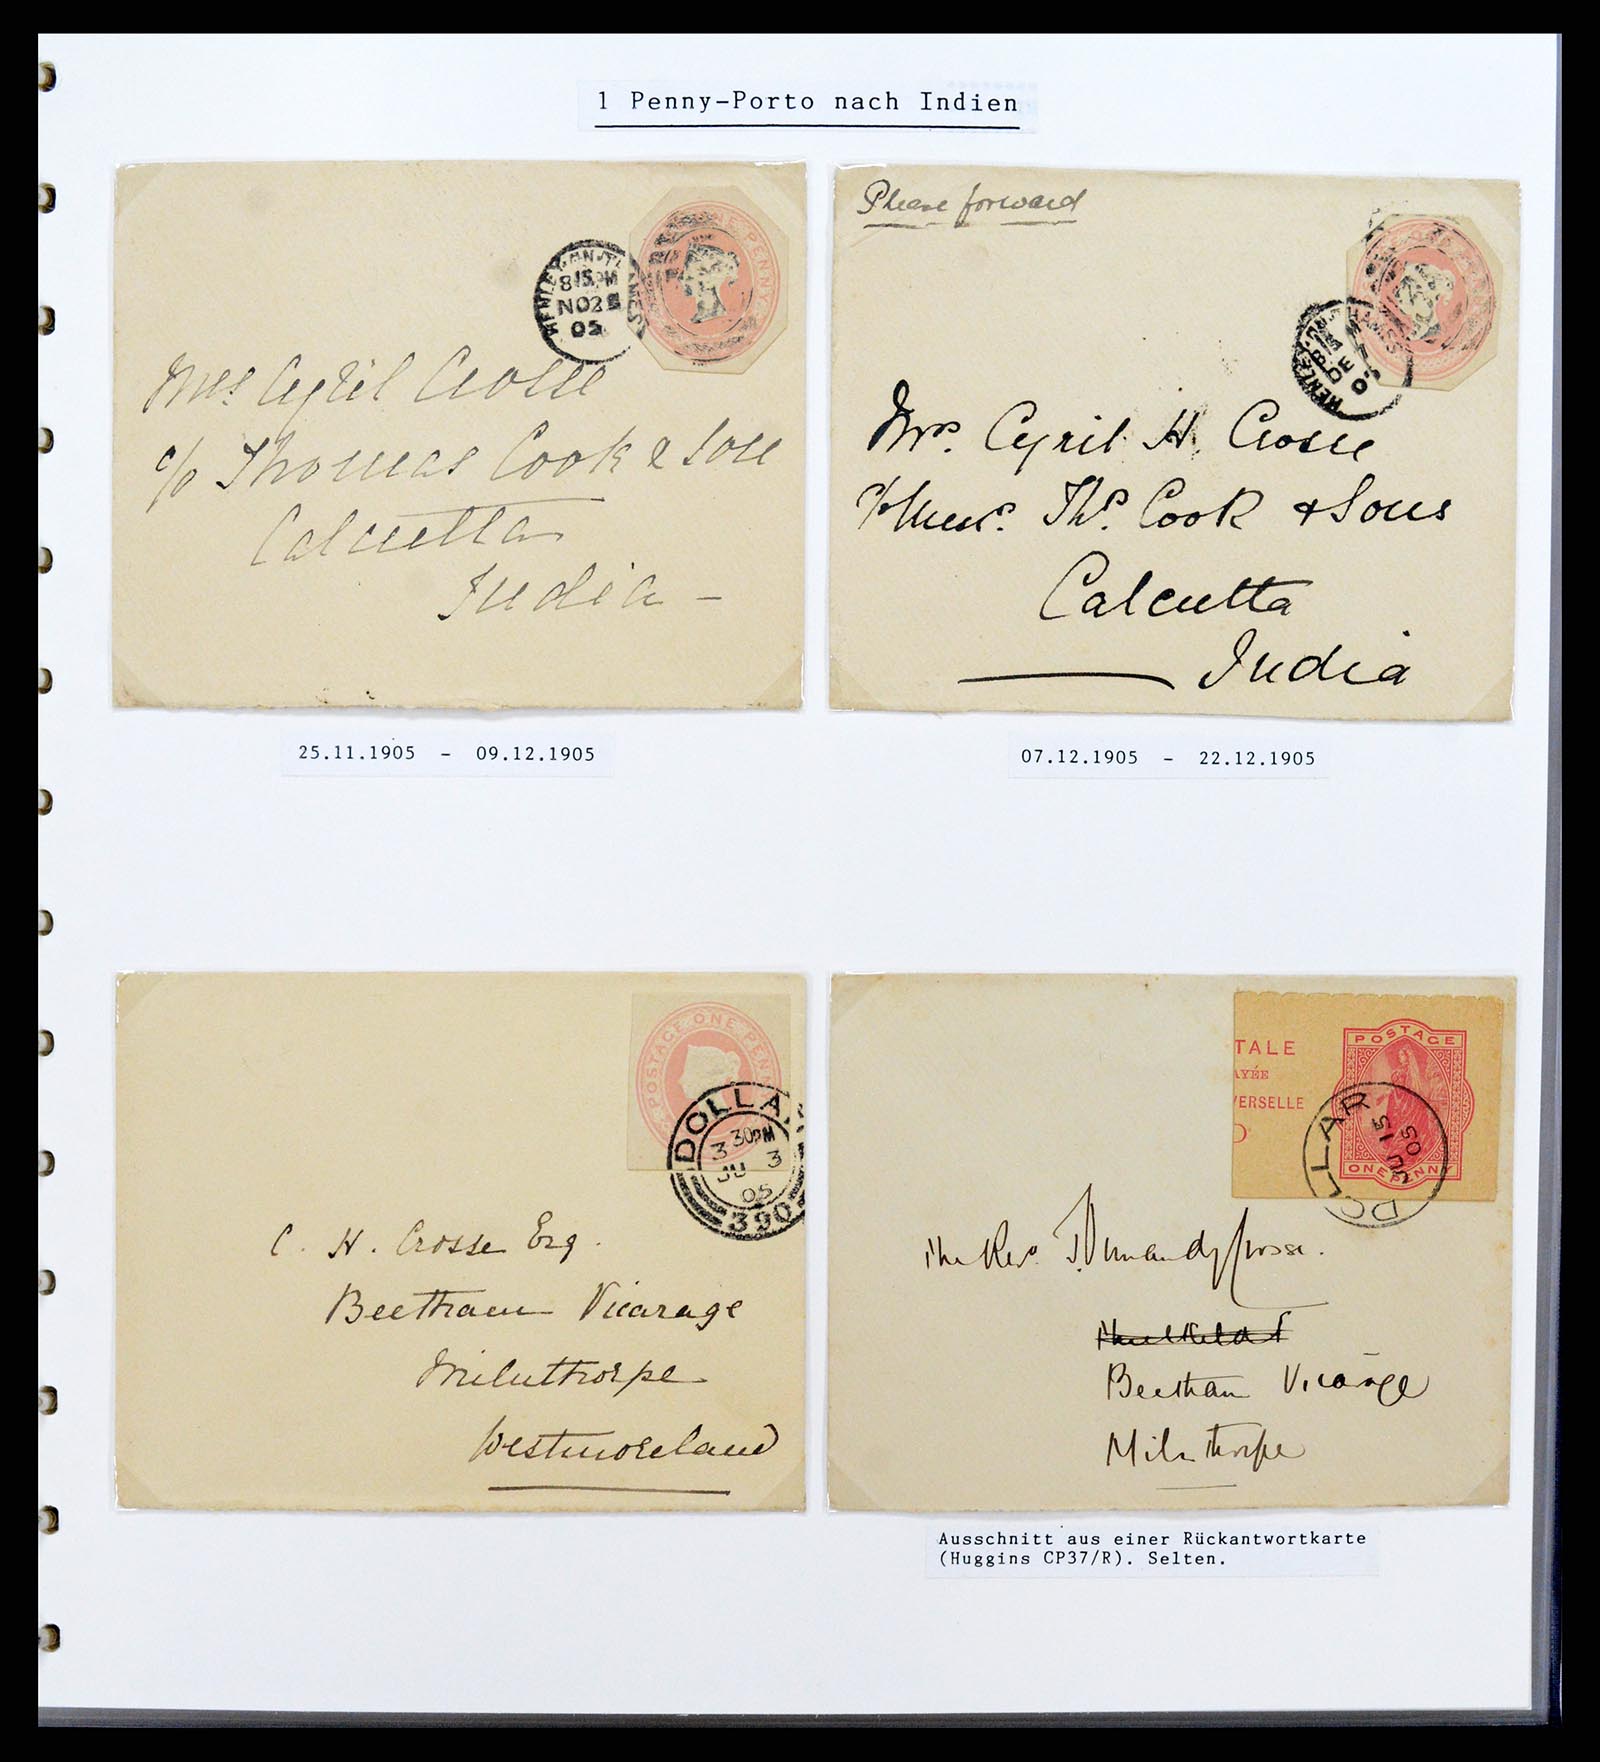 1 Penny-Porto nach Indien
ONE PENNY
HENLEY-ON-THAMES
8 15 PM
NO 2
05
Mrs Cyril Crosse
c/o Thomas Cook & Son
Calcutta
India -
Please forward
HENLEY-ON-THAMES
DE
Mrs. Cyril H. Crosse
c/o Messrs. Thos. Cook & Sons
Calcutta
India
25.11.1905 - 09.12.1905
07.12.1905 - 22.12.1905
POSTAGE ONE PENNY
DOLLAR
3 30PM
JU 3
05
390
C. H. Crosse Esq.
Beetham Vicarage
Milnthorpe
Westmoreland
TALE
AYÉE
VERSELLE
POSTAGE
ONE PENNY
DOLLAR
JU 15
05
The Revd. Crosse.
Beetham Vicarage
Milnthorpe
Ausschnitt aus einer Rückantwortkarte
(Huggins CP37/R). Selten.